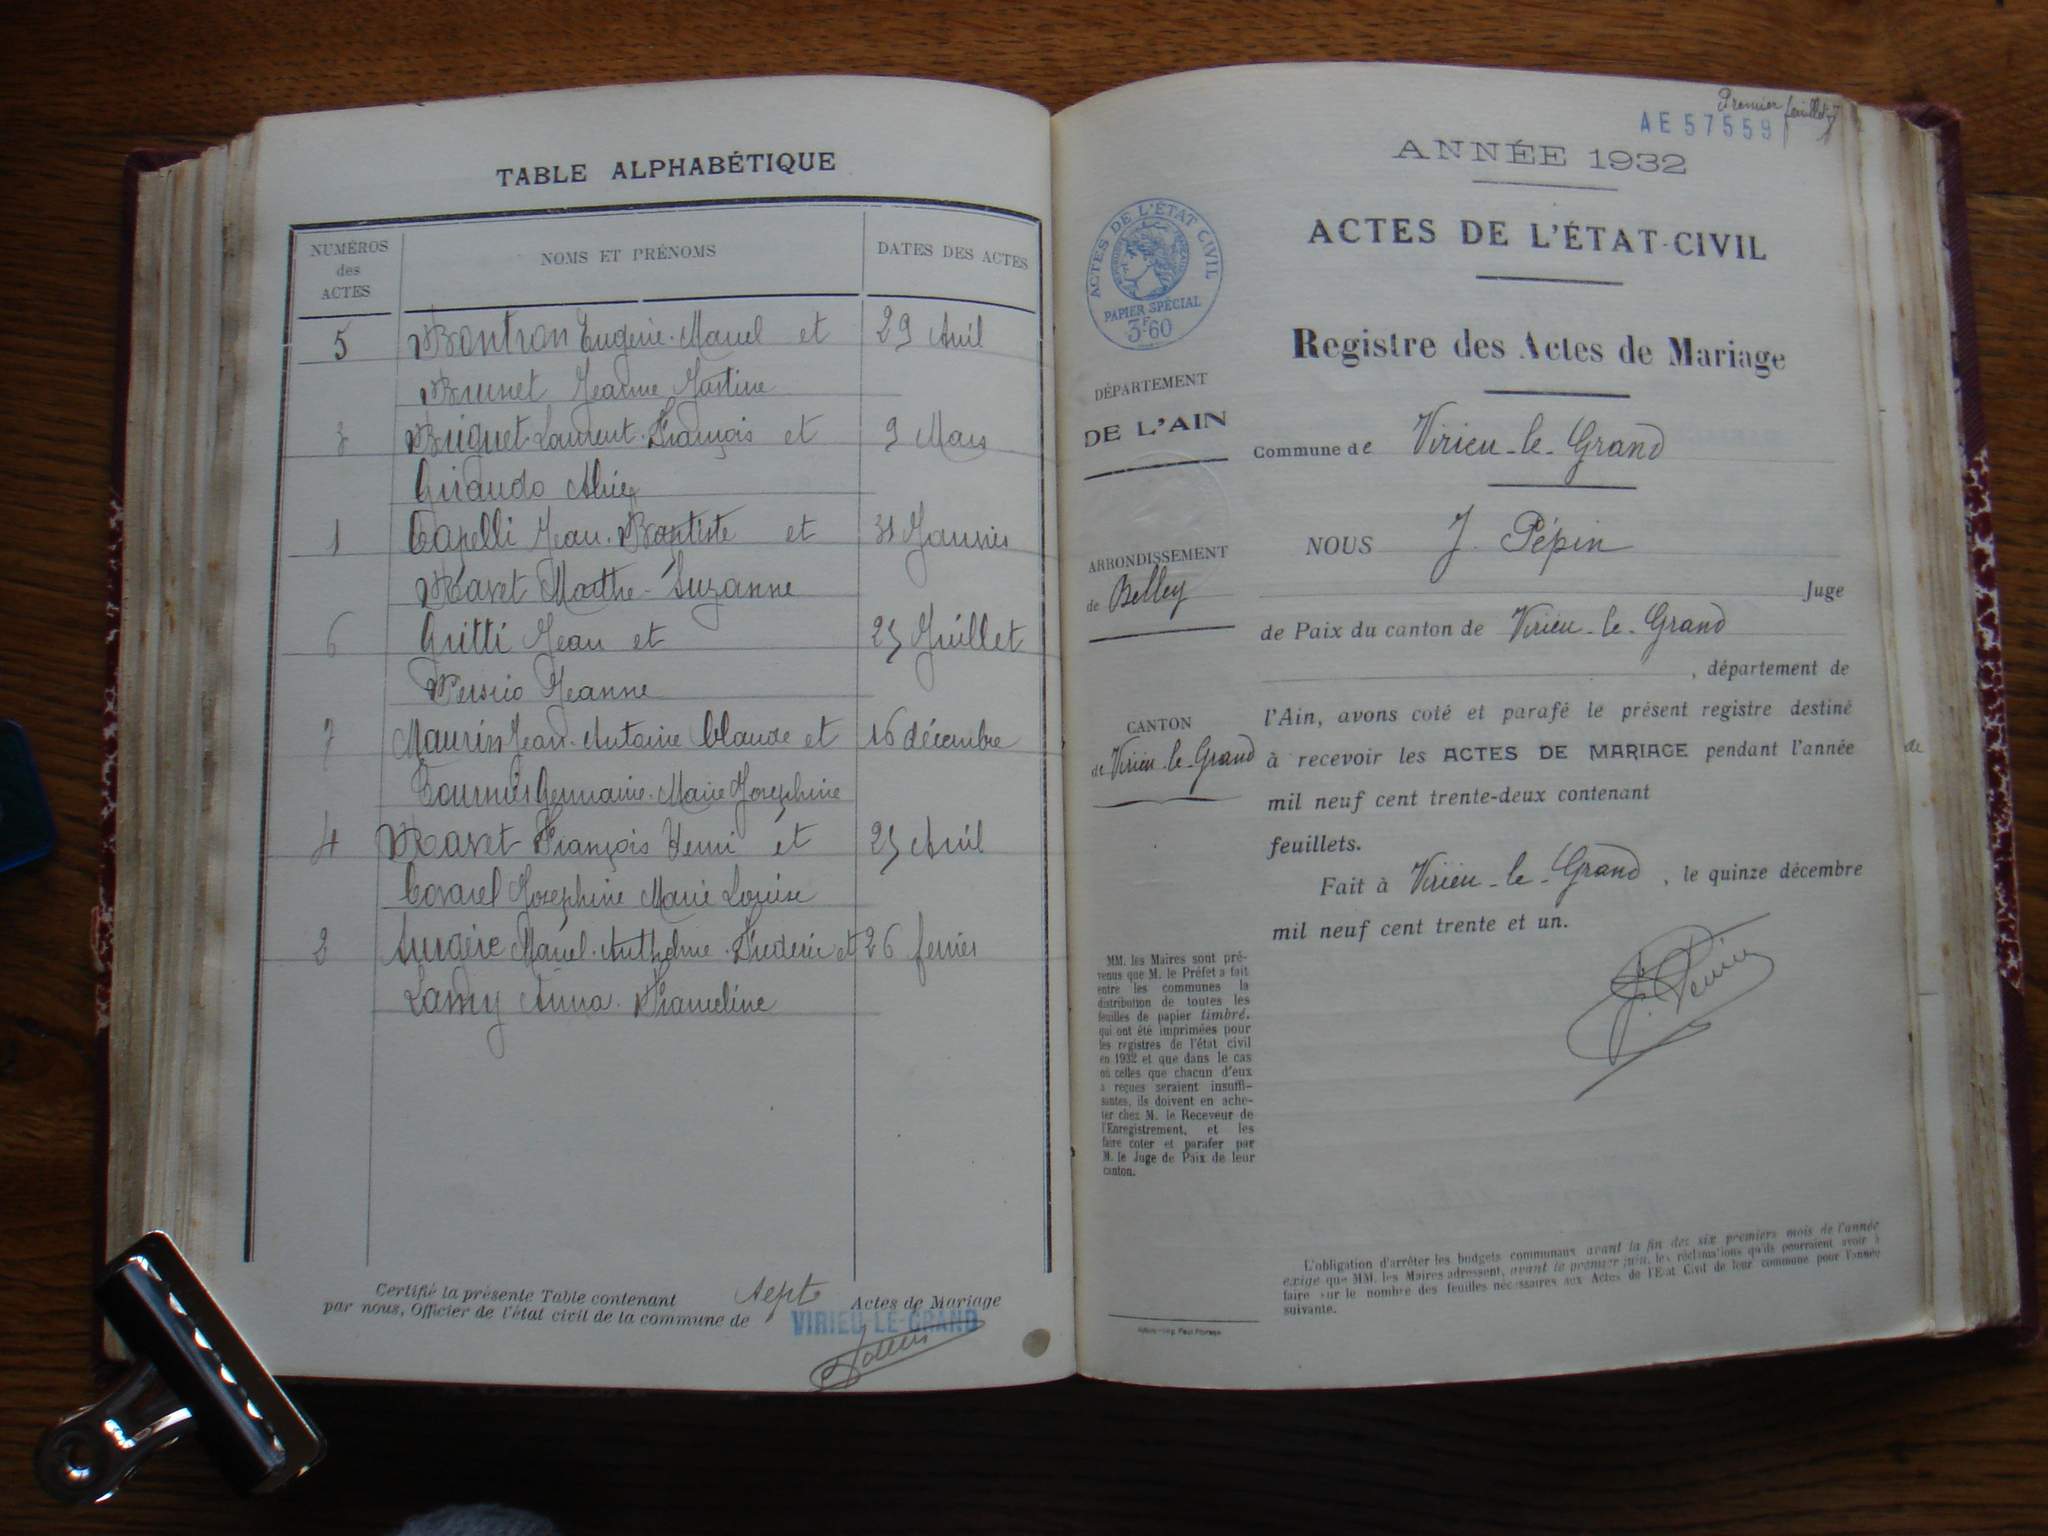 TABLE ALPHABÉTIQUE
NUMÉROS des ACTES
NOMS ET PRÉNOMS
DATES DES ACTES
5 Bontron Eugène Marcel et 29 Avril
Brunet Jeanne Justine
3 Briquet Laurent François et 9 Mars
Giraudo Alice
1 Capelli Jean Baptiste et 31 Janvier
Ravet Marthe Suzanne
6 Gritti Jean et 23 Juillet
Persico Jeanne
7 Maurin Jean Antoine Claude et 16 décembre
Tournier Germaine Marie Josephine
4 Ravet François Henri et 23 Avril
Josephine Marie Louise
2 Surgère Marcel Anthelme Frédéric et 26 février
Lamy Anna Franceline
Certifié la présente Table contenant Sept Actes de Mariage
par nous, Officier de l'état civil de la commune de VIRIEU-LE-GRAND
Premier feuillet
AE 57559
ANNÉE 1932
ACTES DE L'ÉTAT CIVIL
PAPIER SPÉCIAL
3F60
ACTES DE L'ÉTAT-CIVIL
Registre des Actes de Mariage
DÉPARTEMENT
DE L'AIN
Commune de Virieu-le-Grand
NOUS J. Pépin
ARRONDISSEMENT
de Belley
Juge
de Paix du canton de Virieu-le-Grand
, département de
CANTON
de Virieu-le-Grand
l'Ain, avons coté et parafé le présent registre destiné
à recevoir les ACTES DE MARIAGE pendant l'année
mil neuf cent trente-deux contenant
feuillets.
Fait à Virieu-le-Grand, le quinze décembre
mil neuf cent trente et un.
J. Pépin
MM. les Maires sont pré-
venus que M. le Préfet a fait
entre les communes la
distribution de toutes les
feuilles de papier timbré,
qui ont été imprimées pour
les registres de l'état civil
en 1932 et que dans le cas
où celles que chacun d'eux
a reçues seraient insuffi-
santes, ils doivent en ache-
ter chez M. le Receveur de
l'Enregistrement, et les
faire coter et parafer par
M. le Juge de Paix de leur
canton.
L'obligation d'arrêter les budgets communaux avant la fin des six premiers mois de l'année
exige que MM. les Maires adressent, avant le premier juin, les réclamations qu'ils pourraient avoir à
faire sur le nombre des feuilles nécessaires aux Actes de l'État Civil de leur commune pour l'année
suivante.
de